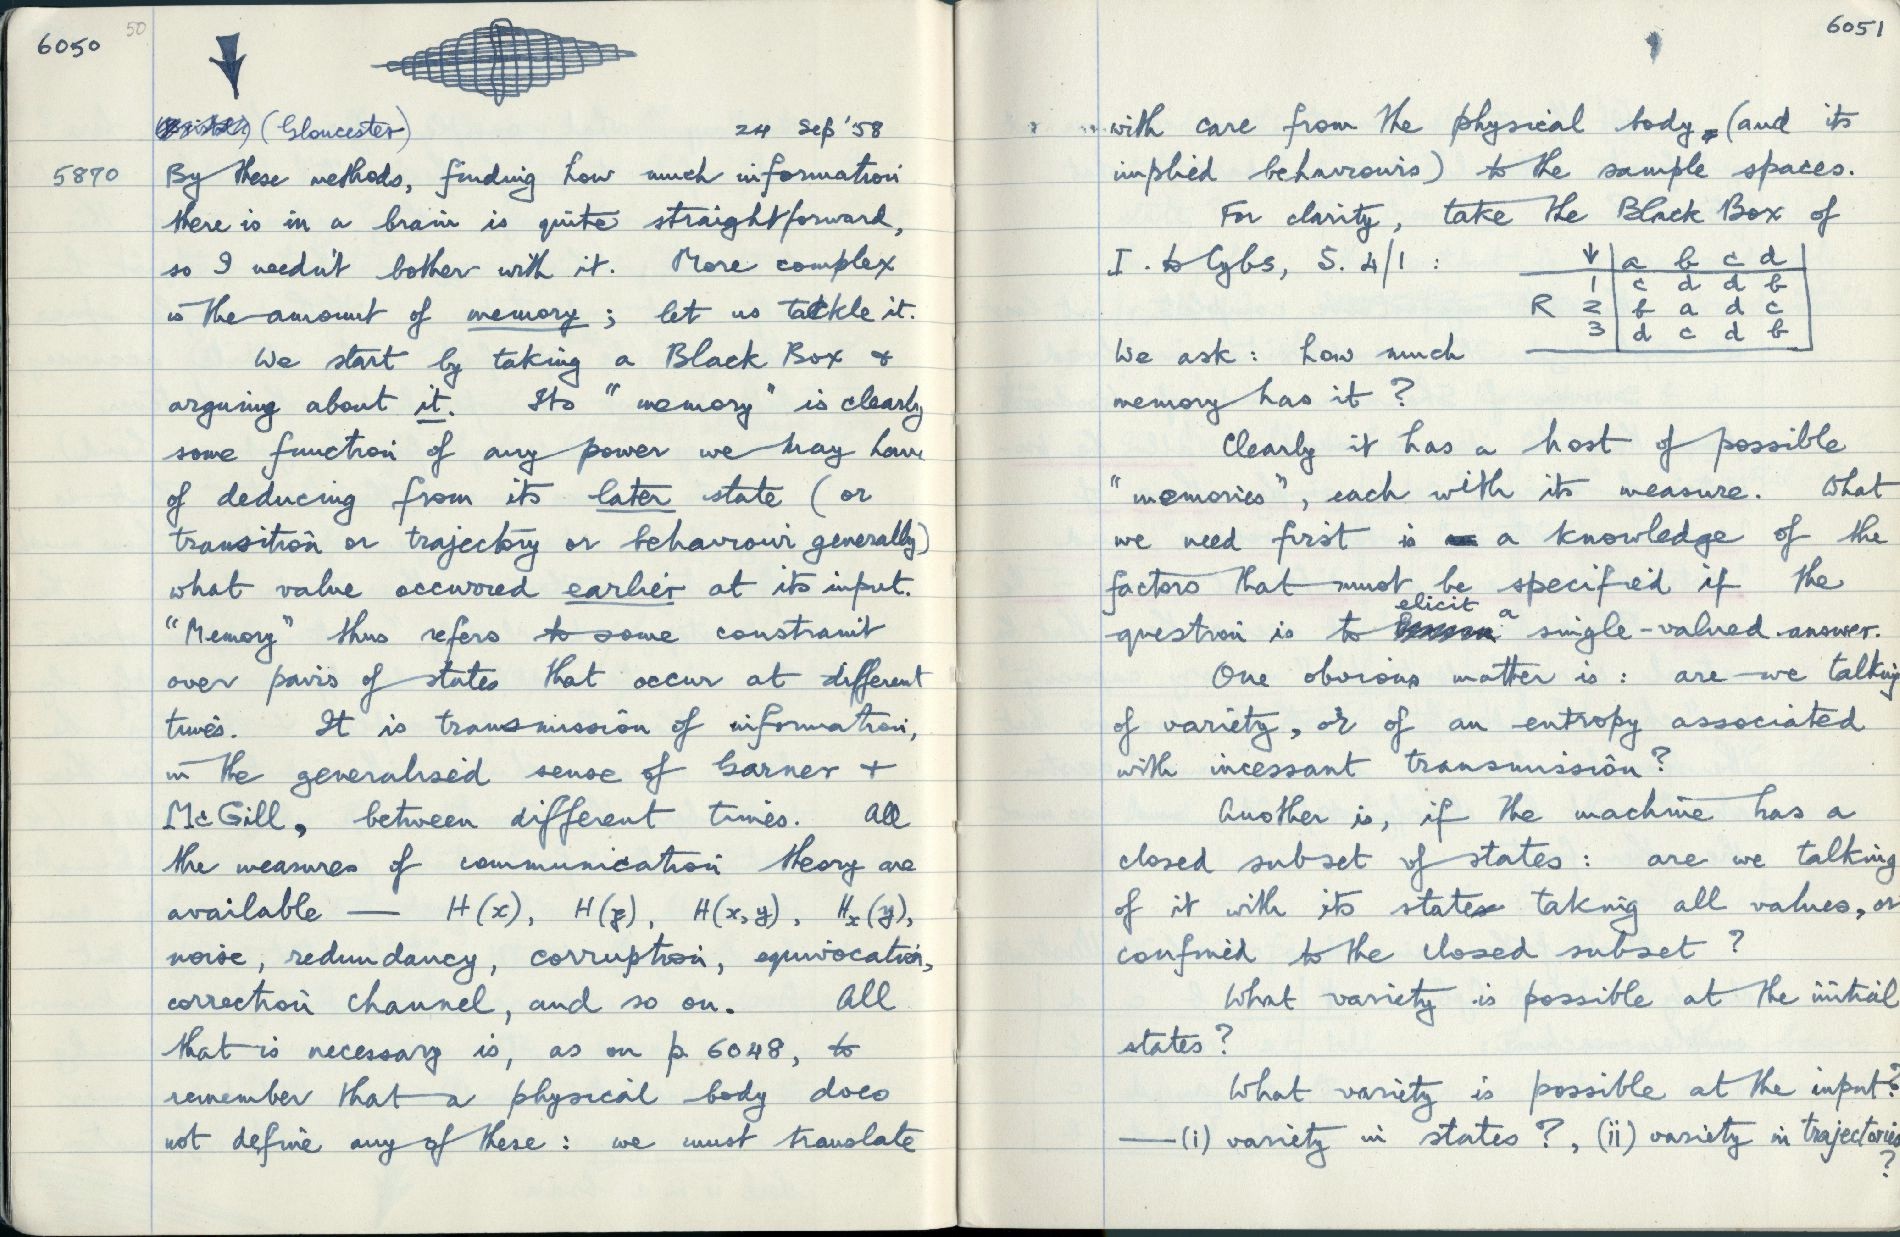 6050 50
(Gloucester) 24 Sep '58
5870 By these methods, finding how much information
there is in a brain is quite straightforward,
so I needn't bother with it. More complex
is the amount of memory; let us tackle it.
We start by taking a Black Box &
arguing about it. Its "memory" is clearly
some function of any power we may have
of deducing from its later state (or
transition or trajectory or behaviour generally)
what value occurred earlier at its input.
"Memory" thus refers to some constraint
over pairs of states that occur at different
times. It is transmission of information,
in the generalised sense of Garner +
McGill, between different times. All
the measures of communication theory are
available — H(x), H(y), H(x,y), Hx(y),
noise, redundancy, corruption, equivocation,
correction channel, and so on. All
that is necessary is, as on p. 6048, to
remember that a physical body does
not define any of these: we must translate
6051
with care from the physical body, (and its
implied behaviours) to the sample spaces.
For clarity, take the Black Box of
I. to Cybs, S. 4/1 :
↓ a b c d
1 c d d b
R 2 b a d c
3 d c d b
We ask: how much
memory has it?
Clearly it has a host of possible
"memories", each with its measure. What
we need first is a knowledge of the
factors that must be specified if the
question is to elicit a single-valued answer.
One obvious matter is: are we talking
of variety, or of an entropy associated
with incessant transmission?
Another is, if the machine has a
closed subset of states: are we talking
of it with its states taking all values, or
confined to the closed subset?
What variety is possible at the initial
states?
What variety is possible at the input?
— (i) variety in states?, (ii) variety in trajectories
?